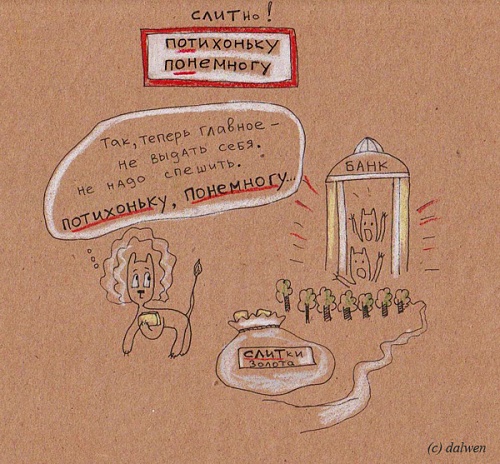 слитно!
потихоньку
понемногу
Так, теперь главное –
не выдать себя.
не надо спешить.
потихоньку, понемногу...
БАНК
слитки
золота
(c) dalwen